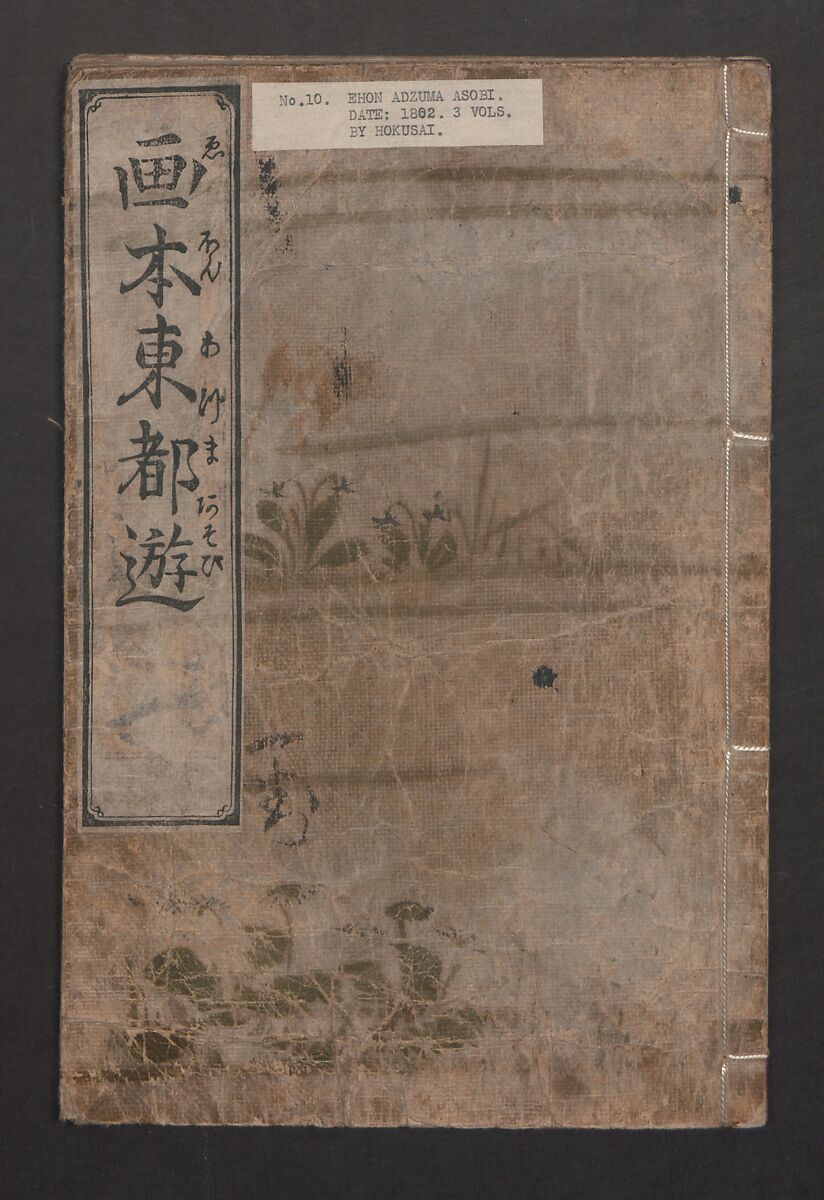 No.10. EHON ADZUMA ASOBI.
DATE: 1802. 3 VOLS.
BY HOKUSAI.
画本東都遊
ゑほんあづまあそび